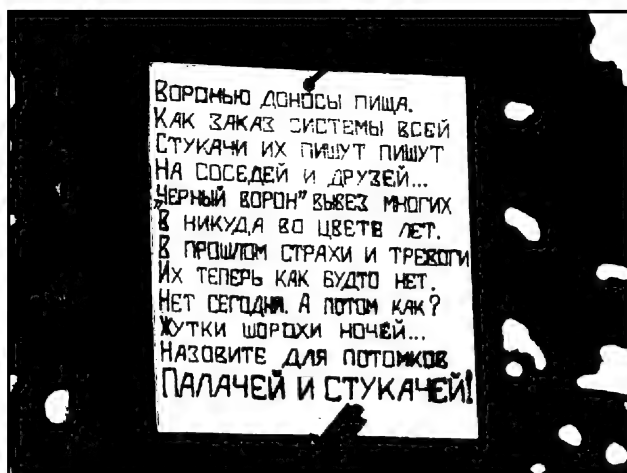 ВОРОНЬЮ ДОНОСЫ ПИЩА.
КАК ЗАКАЗ СИСТЕМЫ ВСЕЙ
СТУКАЧИ ИХ ПИШУТ ПИШУТ
НА СОСЕДЕЙ И ДРУЗЕЙ...
„ЧЕРНЫЙ ВОРОН" ВЫВЕЗ МНОГИХ
В НИКУДА ВО ЦВЕТЕ ЛЕТ.
В ПРОШЛОМ СТРАХИ И ТРЕВОГИ
ИХ ТЕПЕРЬ КАК БУДТО НЕТ.
НЕТ СЕГОДНЯ. А ПОТОМ КАК?
ЖУТКИ ШОРОХИ НОЧЕЙ...
НАЗОВИТЕ ДЛЯ ПОТОМКОВ
ПАЛАЧЕЙ И СТУКАЧЕЙ!